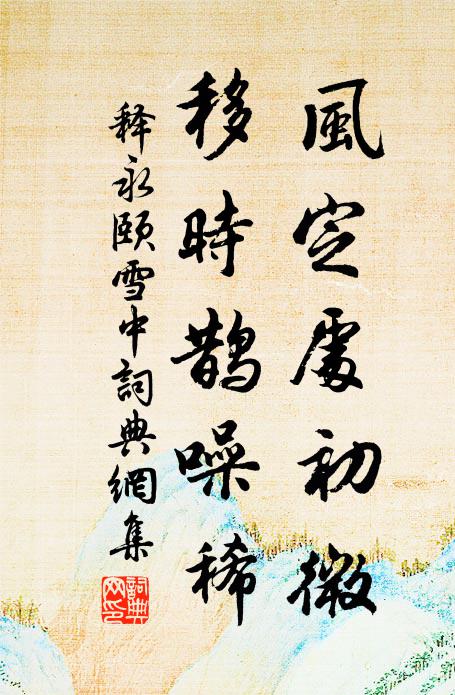 風定處初微
移時鵲噪稀
释永頤雪中詞典網集
詞典